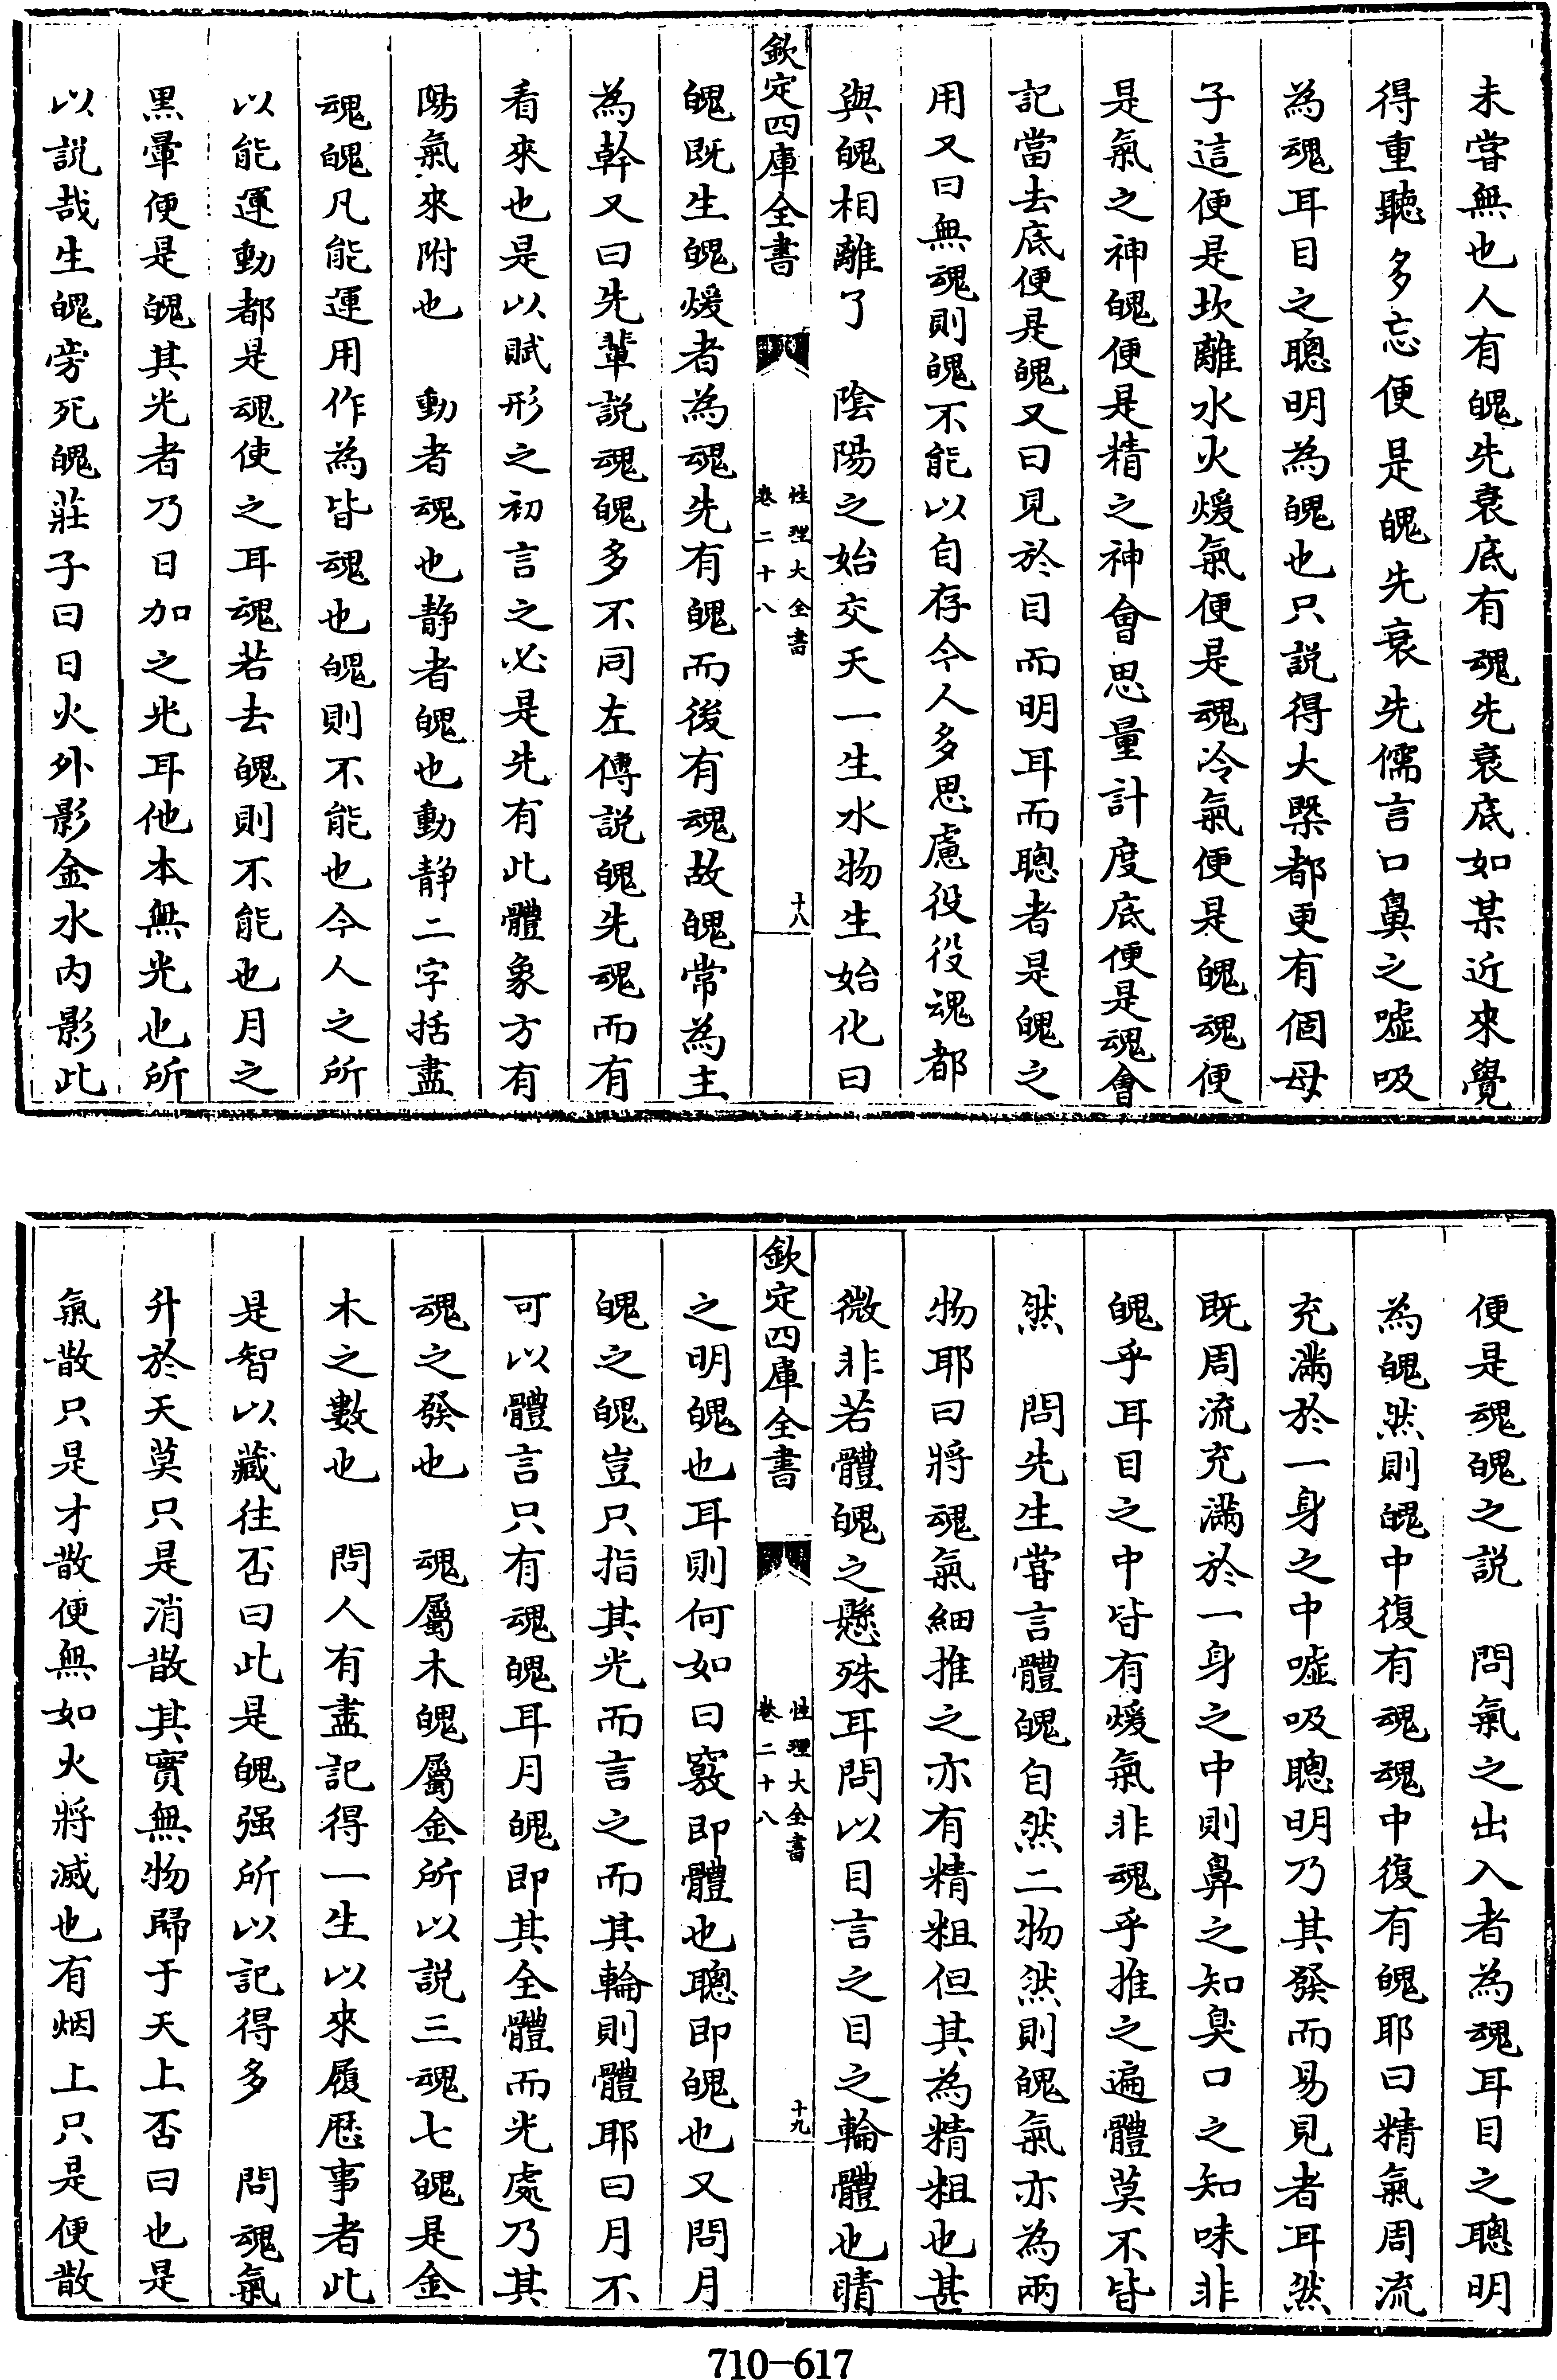 未嘗無也人有魄先衰底有魂先衰底如某近來覺
得重聽多忘便是魄先衰先儒言口鼻之噓吸
為魂耳目之聰明為魄也只說得大槩都更有個母
子這便是坎離水火煖氣便是魂冷氣便是魄魂便
是氣之神魄便是精之神會思量計度底便是魂會
記當去底便是魄又曰見於目而明耳而聰者是魄之
用又曰無魂則魄不能以自存今人多思慮役役魂都
與魄相離了　陰陽之始交天一生水物生始化曰
欽定四庫全書
性理大全書
卷二十八
十八
魄既生魄煖者為魂先有魄而後有魂故魄常為主
為幹又曰先輩說魂魄多不同左傳說魄先魂而有
看來也是以賦形之初言之必是先有此體象方有
陽氣來附也　動者魂也静者魄也動静二字括盡
魂魄凡能運用作為皆魂也魄則不能也今人之所
以能運動都是魂使之耳魂若去魄則不能也月之
黑暈便是魄其光者乃日加之光耳他本無光也所
以説哉生魄旁死魄莊子曰日火外影金水内影此
便是魂魄之説　問氣之出入者為魂耳目之聰明
為魄然則魄中復有魂魂中復有魄耶曰精氣周流
充滿於一身之中噓吸聰明乃其發而易見者耳然
既周流充滿於一身之中則鼻之知臭口之知味非
魄乎耳目之中皆有煖氣非魂乎推之遍體莫不皆
然　問先生嘗言體魄自然二物然則魄氣亦為兩
物耶曰將魂氣細推之亦有精粗但其為精粗也甚
微非若體魄之懸殊耳問以目言之目之輪體也睛
欽定四庫全書
性理大全書
卷二十八
十九
之明魄也耳則何如曰竅即體也聰即魄也又問月
魄之魄豈只指其光而言之而其輪則體耶曰月不
可以體言只有魂魄耳月魄即其全體而光處乃其
魂之發也　魂屬木魄屬金所以説三魂七魄是金
木之數也　問人有盡記得一生以來履歷事者此
是智以藏往否曰此是魄强所以記得多　問魂氣
升於天莫只是消散其實無物歸于天上否曰也是
氣散只是才散便無如火將滅也有烟上只是便散
710-617